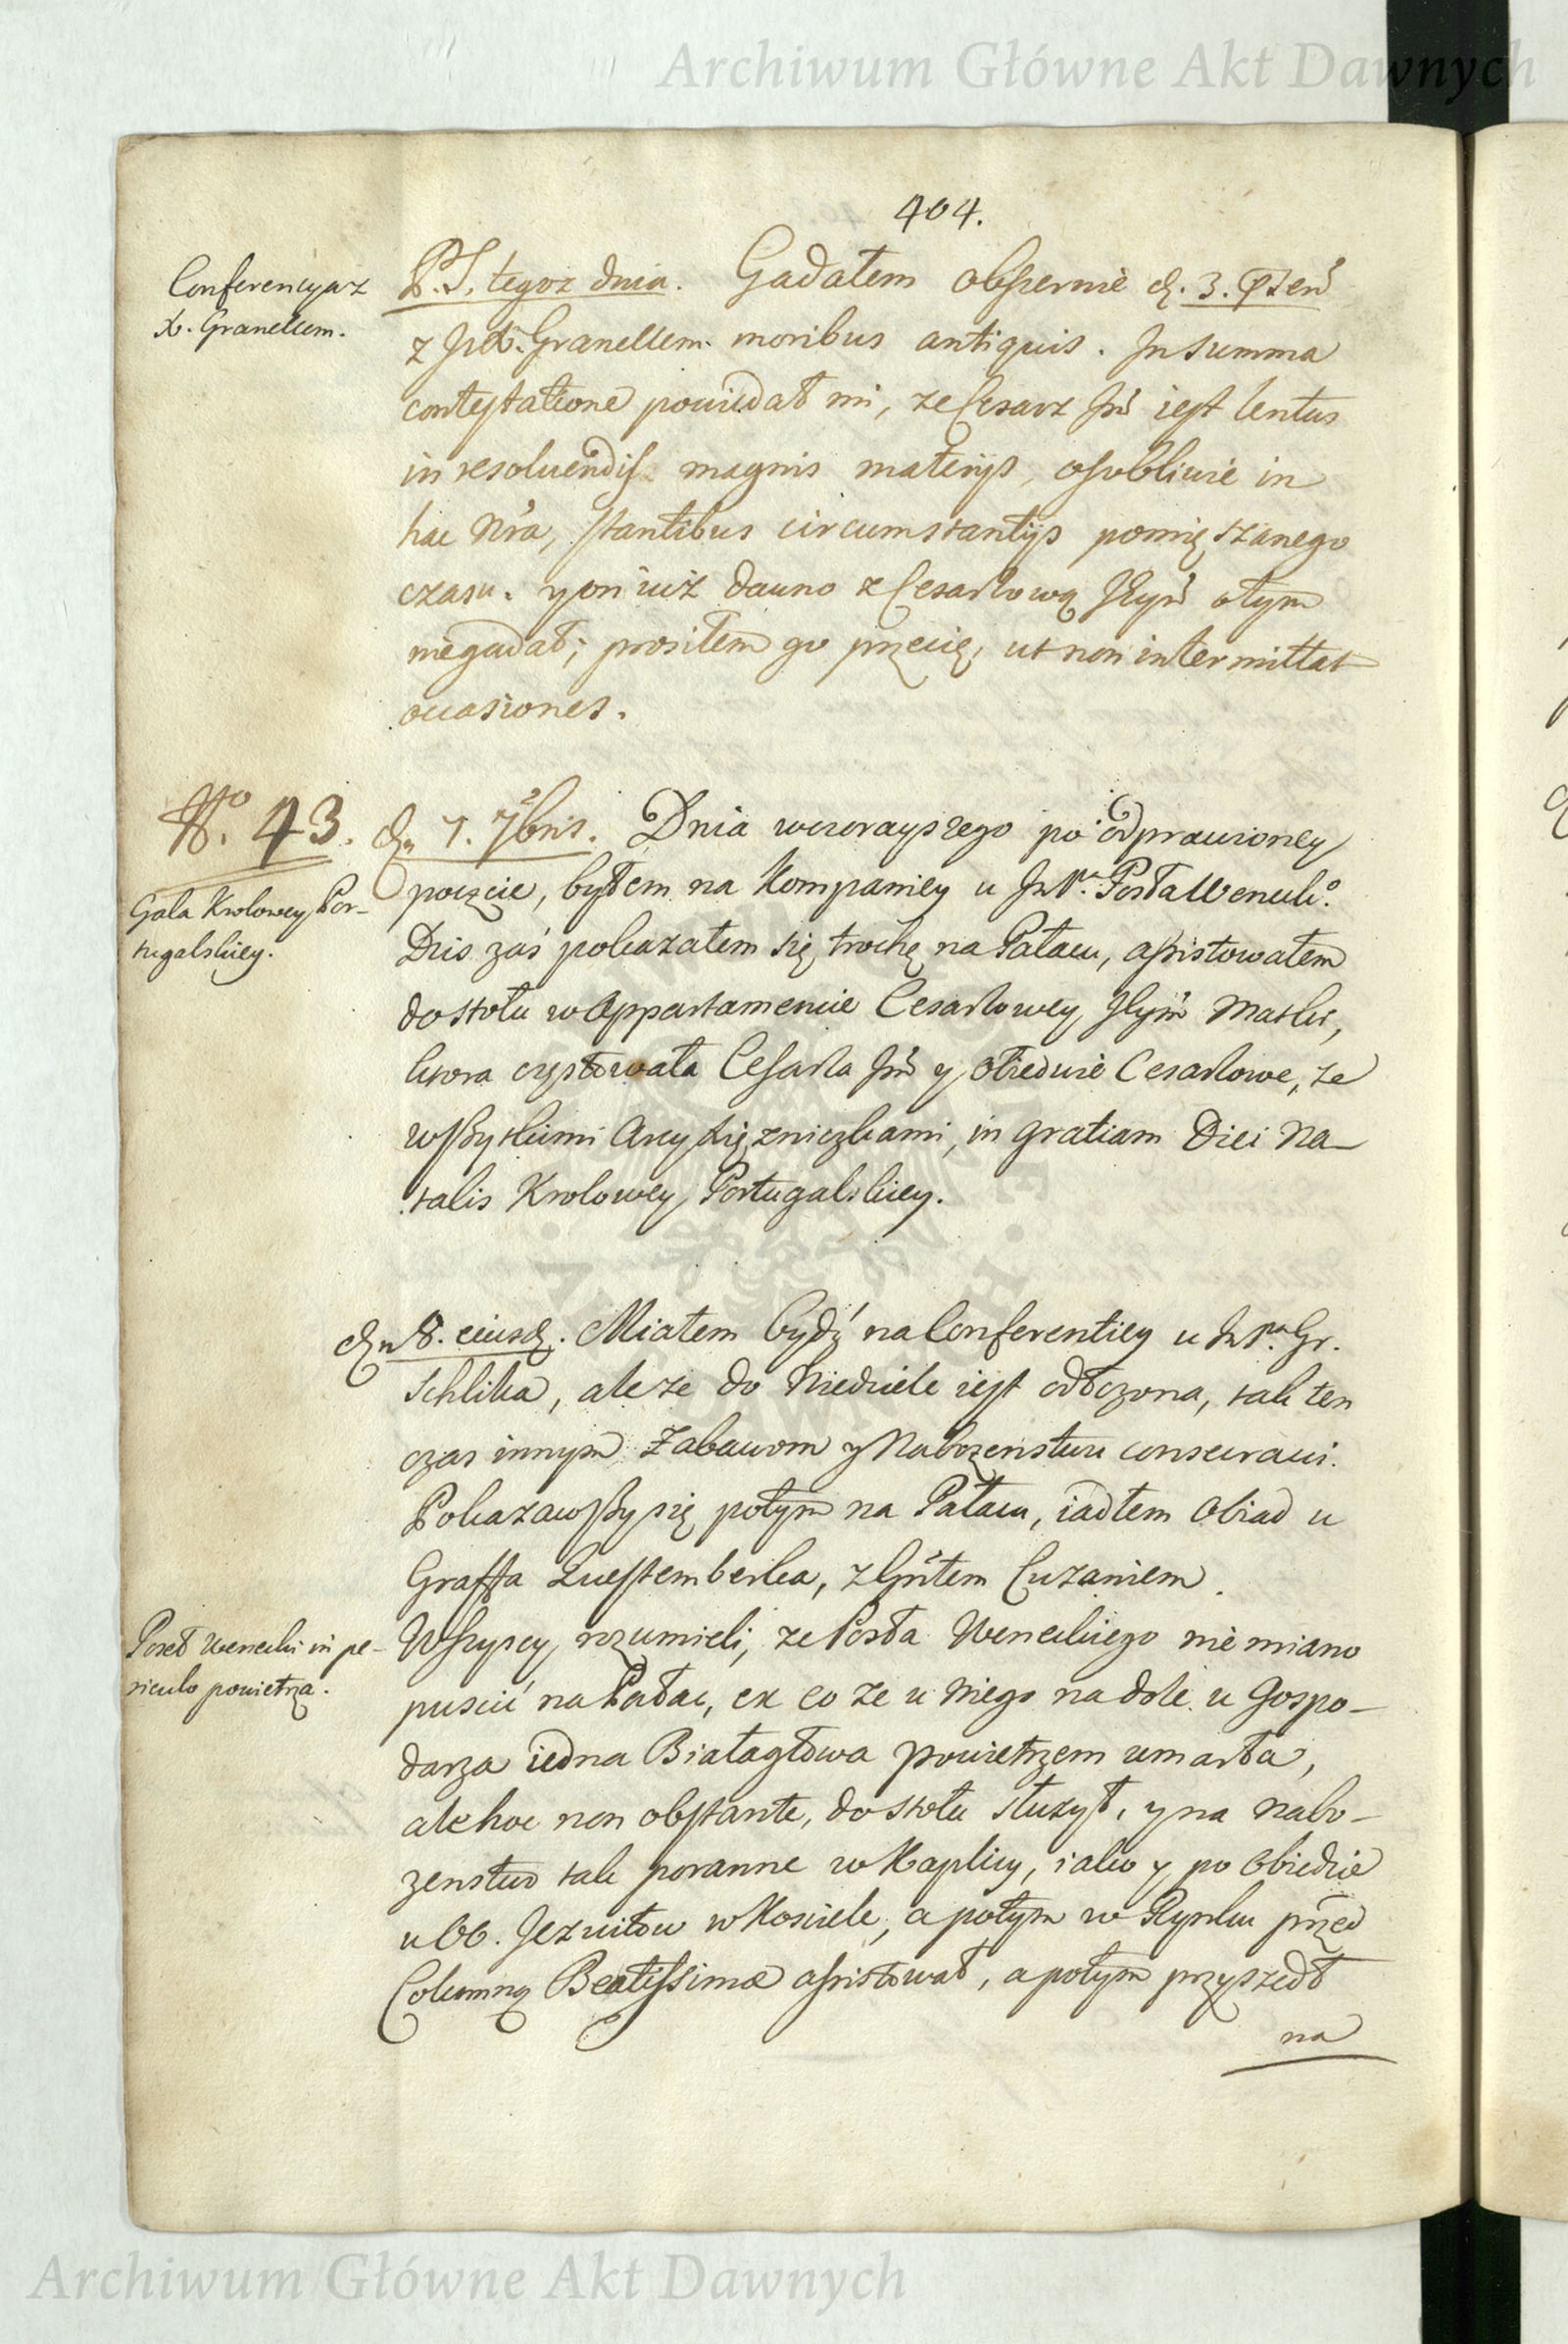 Archiwum Główne Akt Dawnych
404.
Conferencya z
X. Granellem.
P.S. tegoz dnia. Gadałem obszernie d. 3. Pzen̄
z JX. Granellem moribus antiquis. In summa
contestatione powiedał mi, ze Cesarz Jm̄ iest lentus
in resoluendis magnis materijs, osobliwie in
hac nr̄a, stantibus circumstantijs pomięszanego
czasu. y on iuż dawno z Cesarzową Jeym̄ o tym
niegadał; prosiłem go przecię, ut non intermittat
occasiones.
No. 43.
Gala Krolowey Por-
tugalskiey.
dn 7. 7bris. Dnia wczorayszego po odprawioney
poczcie, byłem na Kompaniey u JP. Posła Wenecko.
Dzis zaś pokazałem się trochę na Pałacu, assistowałem
do stołu w Appartamencie Cesarzowey Jeym̄ Matki,
ktora czystowała Cesarza Jm̄ y obiedwie Cesarzowe, ze
wszystkimi Arcyxiężniczkami, in gratiam Diei Na-
talis Krolowey Portugalskiey.
dn 8. eiusd. Miałem bydź na Conferentiey u JP. Gr.
Schlika, ale ze do Niedziele iest odłozona, tak ten
czas innym zabawom y Nabozenstwu consecravi.
Pokazawszy się potym na Pałacu, iadłem obiad u
Graffa Questemberka, z Gr̄tem Cuzaniem.
Poseł Wenecki in pe-
riculo powietrza.
Wszyscy rozumieli, ze Posła Weneckiego nie miano
puscić na Pałac, ex eo ze u niego na dole u Gospo-
darza iedna Białagłowa powietrzem umarła,
ale hoc non obstante, do stołu służył, y na nabo-
zenstwo tak poranne w Kaplicy, iako y po obiedzie
u OO. Jezuitow w Kosciele, a potym w Rynku przed
Columną Beatissimæ assistował, a potym przyszedł
na
Archiwum Główne Akt Dawnych